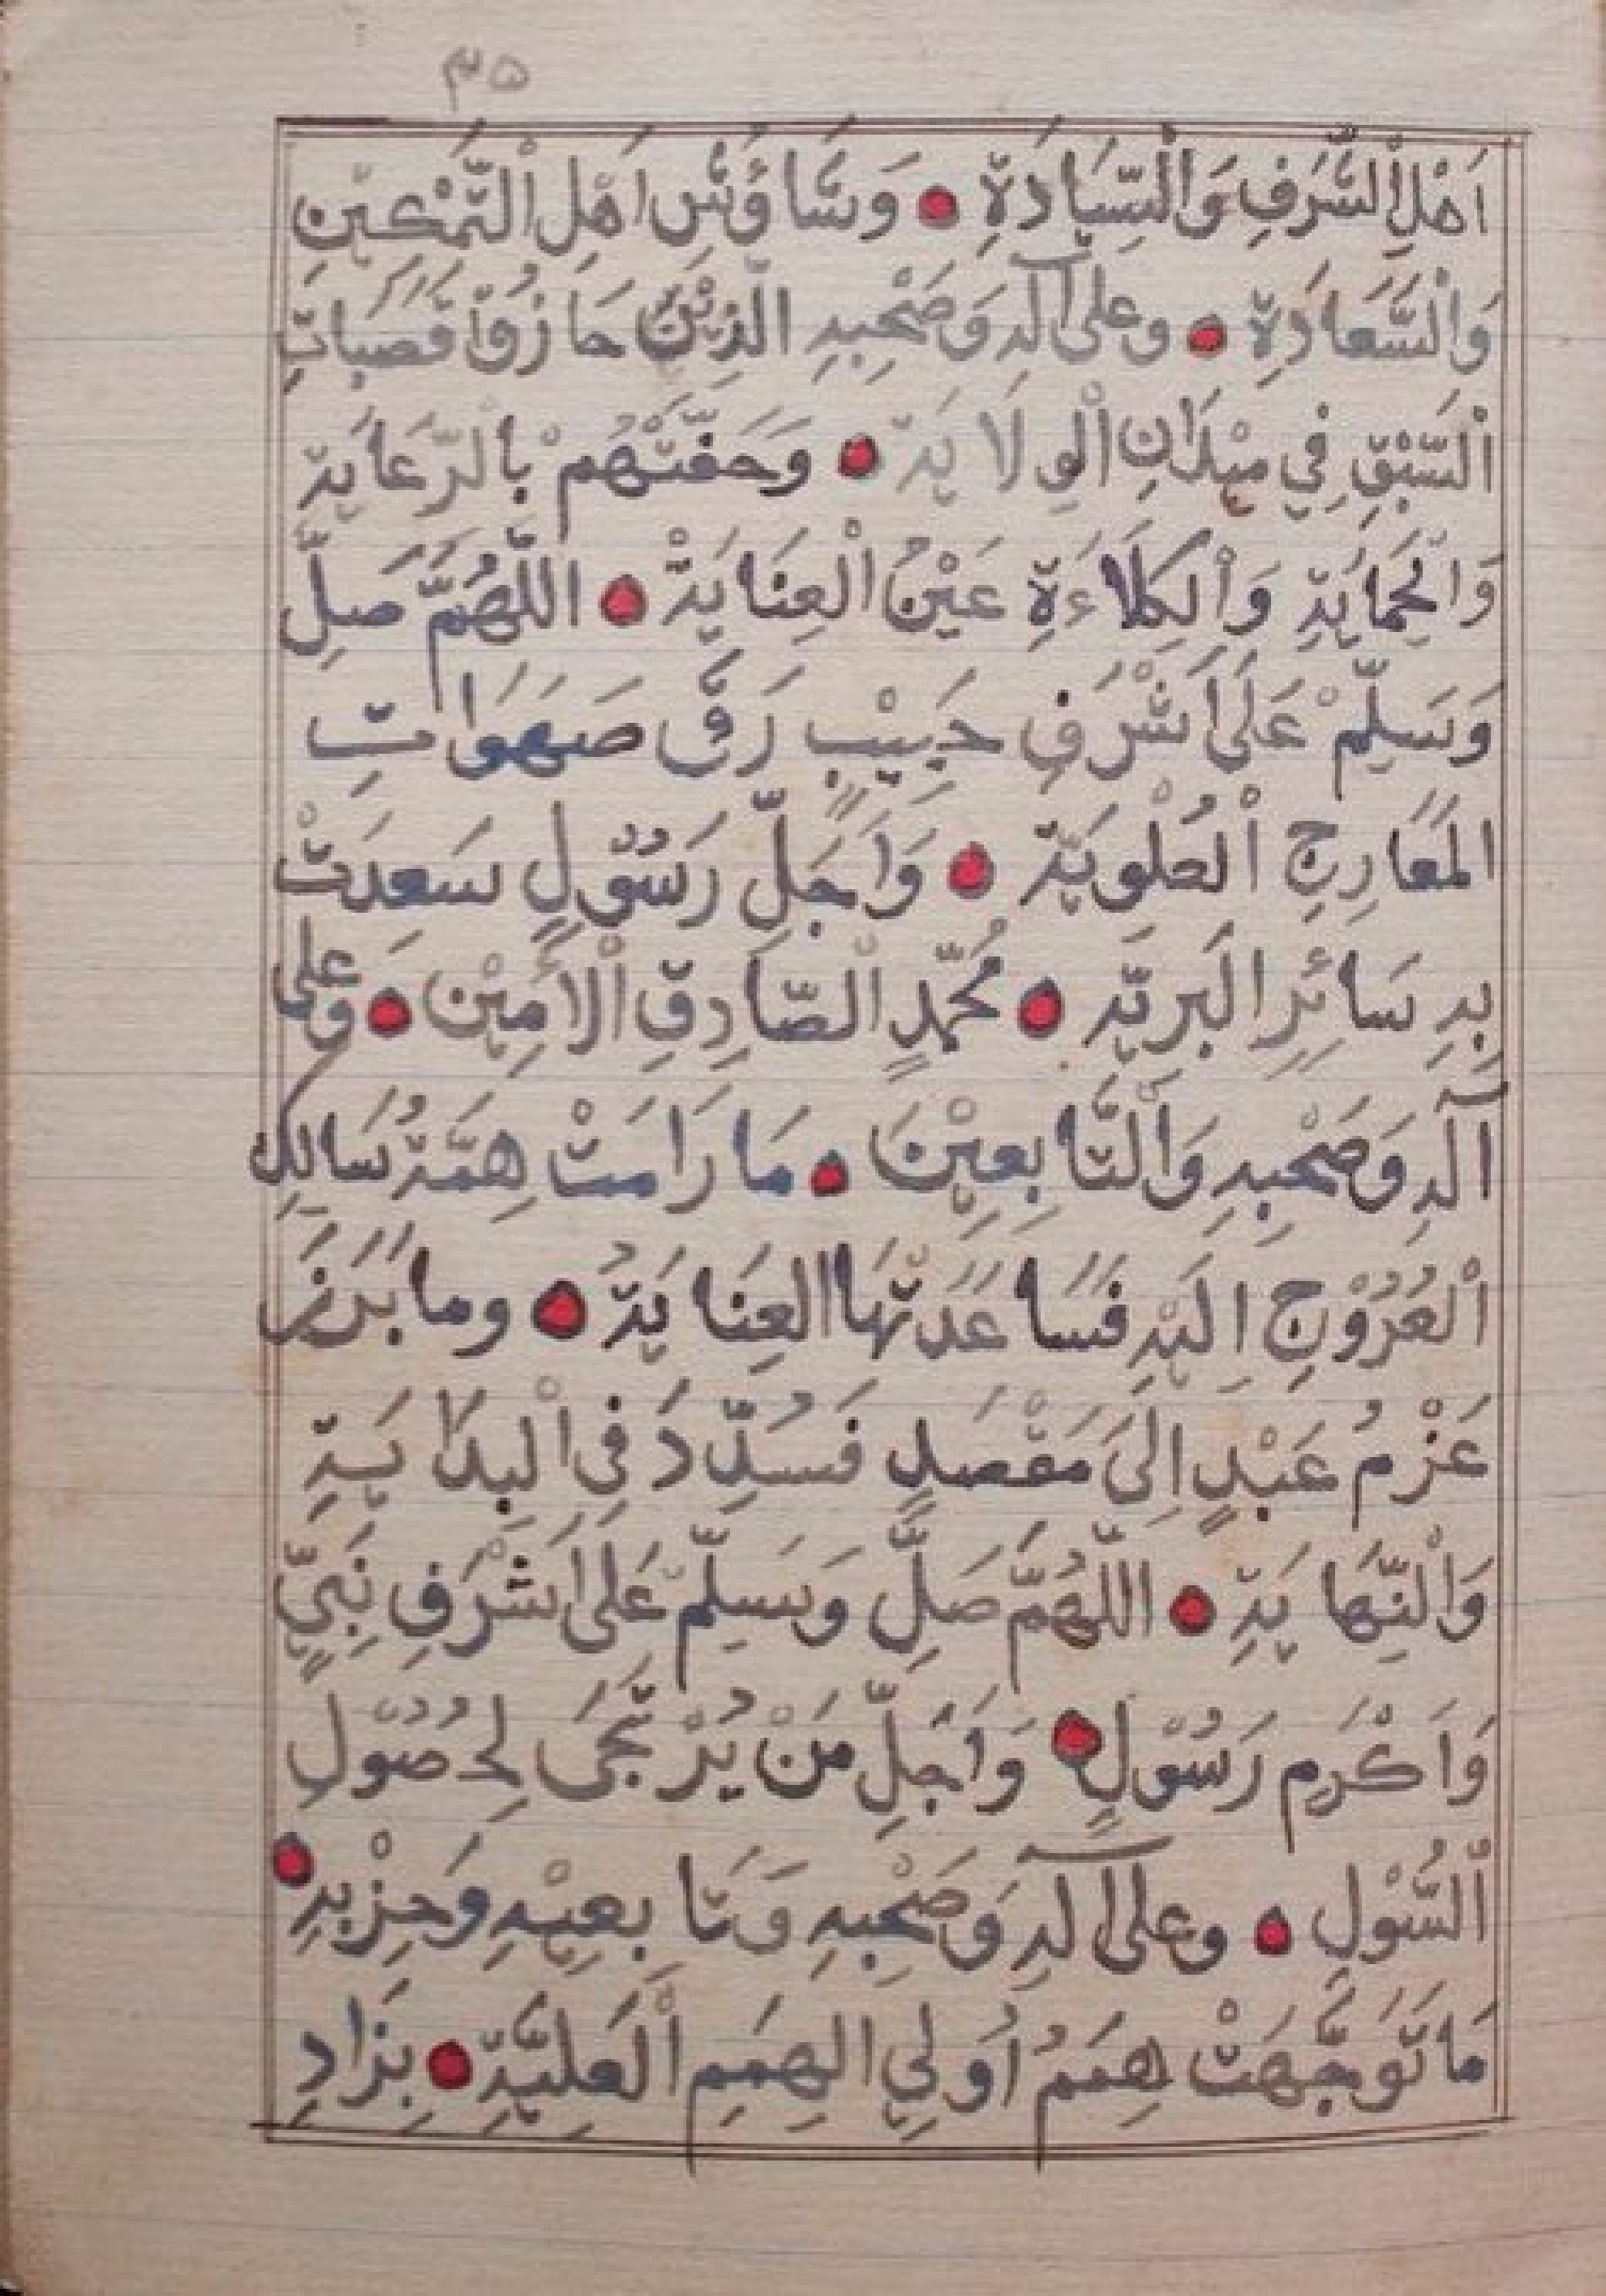 ٣٥
اَهْلِ الْشَّرَفِ وَالْسِّيَادَةِ ● وَسَّاؤُسِ اَهْلِ الْتَّمْكِيْنِ
وَالْسَّعَادَةِ ● وعلى آلهِ وَصَحْبِهِ الَّذِيْنَ حَازُوْا قَصَبَاتِ
الْسَّبْقِ فِي مَيْدَانِ الْوِلَايَة ● وَحَفَّتْهُمْ بِالْرِّعَايَةِ
وَالْحِمَايَةِ وَالْكِلَاءَةِ عَيْنُ الْعِنَايَةْ ● اللّٰهُمَّ صَلِّ
وَسَلِّمْ عَلَى اَشْرَفِ حَبِيْبٍ رَقَى صَهَوَاتِ
الْمَعَارِجِ الْعُلْوِيَّة ● وَاَجَلِّ رَسُوْلٍ سَعِدَتْ
بِهِ سَائِرِ الْبَرِيَّة ● مُحَمَّدٍ الْصَّادِقِ الْأَمِيْن ● وَعَلى
آلهِ وَصَحْبِهِ وَالْتَّابِعِيْنَ ● مَا رَامَتْ هِمَّةُ سَالِكِ
الْعُرُوْجِ اِلَيْهِ فَسَاعَدَتْهَا الْعِنَايَةُ ● وما بَرَزَ
عَزْمُ عَبْدٍ اِلَى مَقْصَدٍ فَسُدِّدَ فِى الْبِدَايَةِ
وَالْنِّهَايَةِ ● اللّٰهُمَّ صَلِّ وَسَلِّمْ عَلَى اَشْرَفِ نَبِيٍّ
وَاَكْرَمِ رَسُوْلٍ ● وَاَجَلِّ مَنْ يُرْتَجَى لِحُصُوْلِ
الْسُّوْلِ ● وعلى آلهِ وَصَحْبِهِ وَتَابِعِيْهِ وَحِزْبِهِ ●
مَا تَوَجَّهَتْ هِمَمُ اُولِي الهِمَمِ الْعَلِيَّةِ ● بِزَادِ